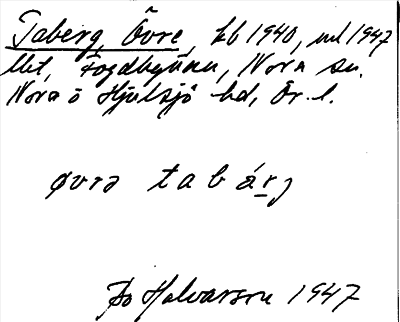 Taberg, Övre, kb 1940, ml 1947
lht, Fogdhyttan, Nora sn.
Nora o Hjulsjö hd, Ör. l.
øvrə tabárj
Bo Halvarson 1947